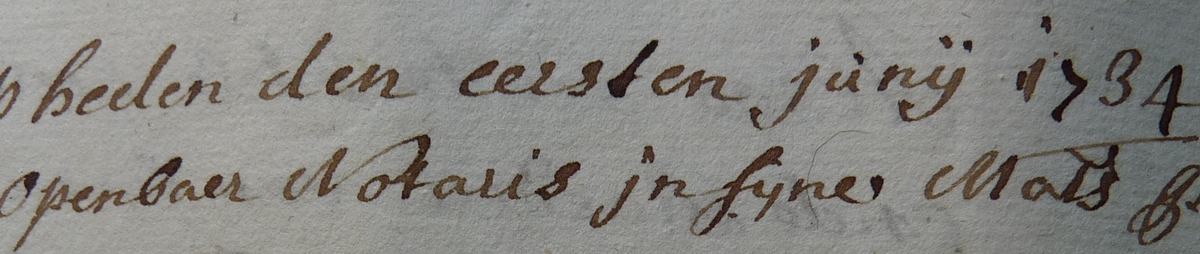 heeden den eersten junij 1734
openbaer Notaris jn syne Mats